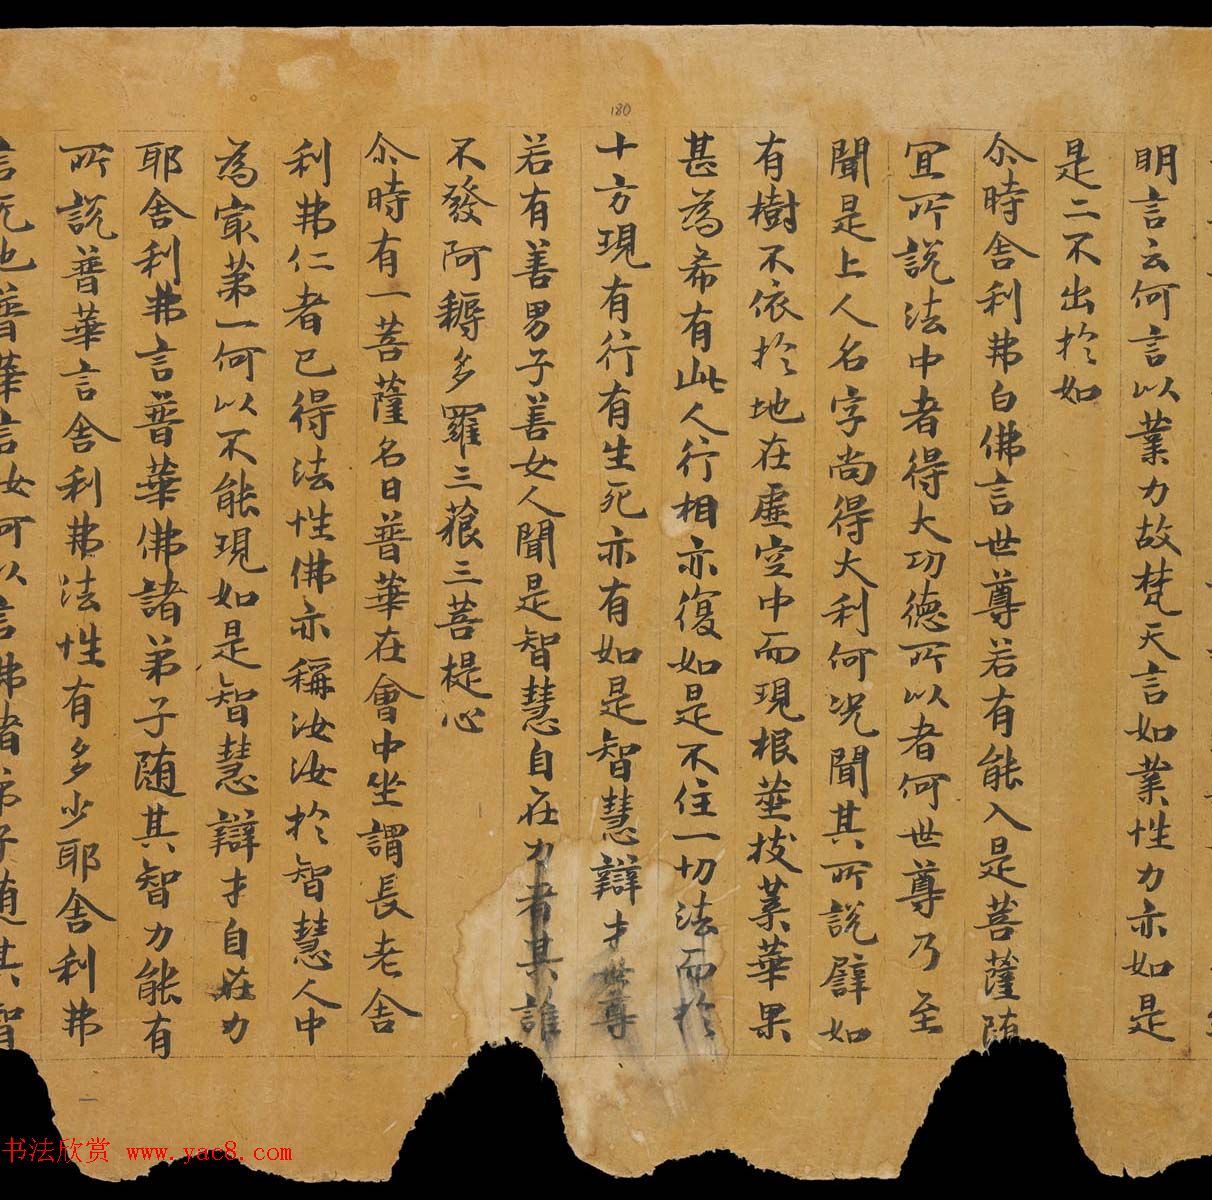 180
明言云何言以業力故梵天言如業性力亦如是
是二不出於如
尒時舍利弗白佛言世尊若有能入是菩薩随
宜所說法中者得大功德所以者何世尊乃至
聞是上人名字尚得大利何況聞其所說譬如
有樹不依於地在虛空中而現根莖枝葉華果
甚為希有此人行相亦復如是不住一切法而於
十方現有行有生死亦有如是智慧辯才世尊
若有善男子善女人聞是智慧自在力者其誰
不發阿耨多羅三藐三菩提心
尒時有一菩薩名曰普華在會中坐謂長老舍
利弗仁者已得法性佛亦稱汝汝於智慧人中
為寂苐一何以不能現如是智慧辯才自在力
耶舍利弗言普華佛諸弟子随其智力能有
所說普華言舍利弗法性有多少耶舍利弗
言无也普華言汝何以言佛諸弟子随其智
一
书法欣赏 www.yac8.com